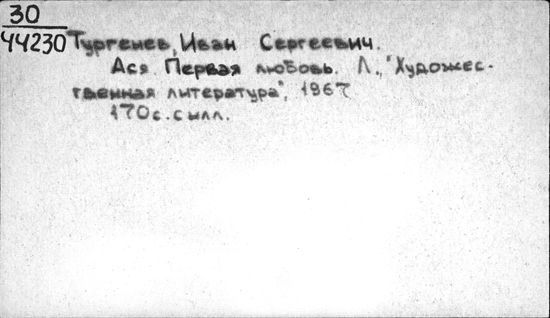 30
44230
Тургенев, Иван Сергеевич.
Ася. Первая любовь. Л., "Художес-
твенная литература", 1967
170с. с илл.